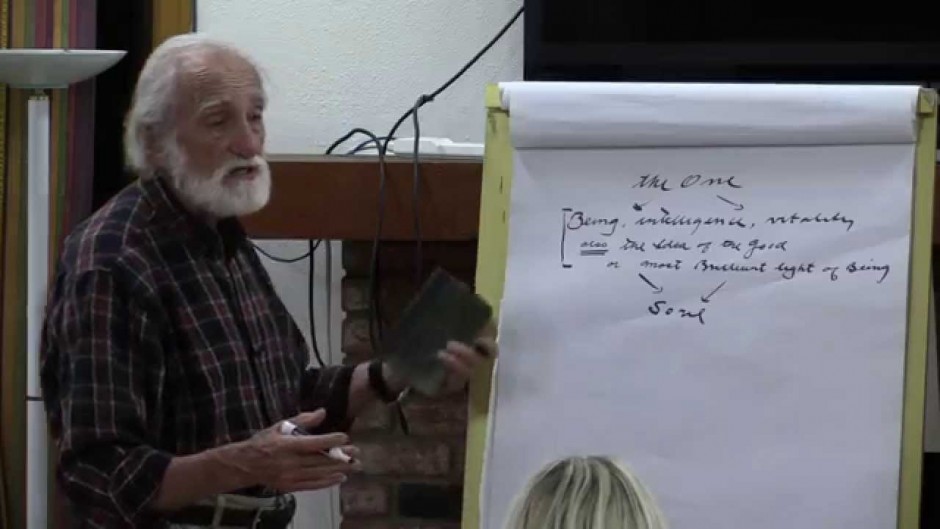 the One
Being, intelligence, vitality
also the idea of the good
or most Brilliant light of Being
Soul